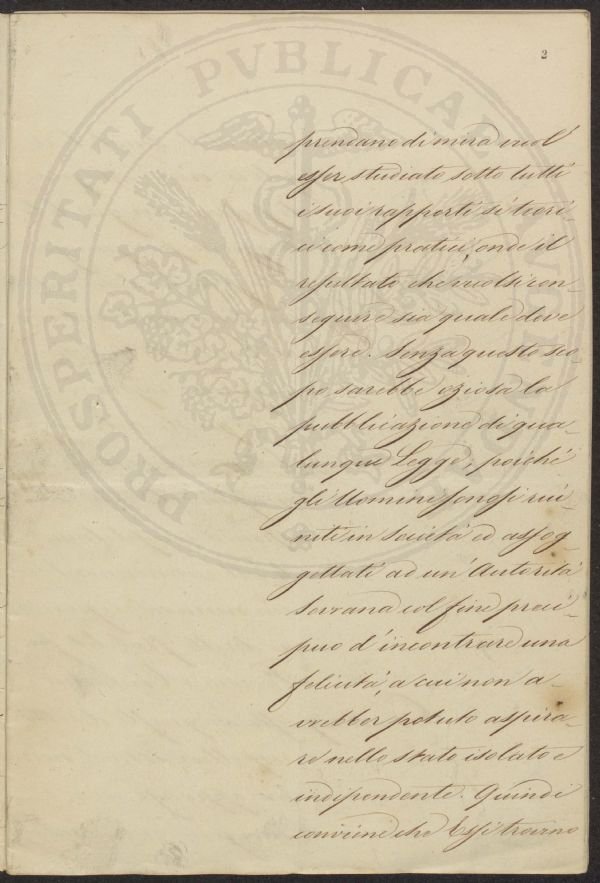 2
prendano di mira vuol'
esser studiato sotto tutti
i suoi rapporti sì teori-
ci come pratici, onde il
resultato che vuolsi con-
seguire sia quale deve
essere. Senza questo sco-
po sarebbe oziosa la
pubblicazione di qua-
lunque Legge; poiché
gli Uomini sonosi riu-
niti in Società ed assog-
gettati ad un' Autorità
Sovrana col fine preci-
puo d'incontrare una
felicità, a cui non a-
vrebber potuto aspira-
re nello stato isolato e
indipendente. Quindi
conviene che Essi trovino
PROSPERITATI PVBLICAE